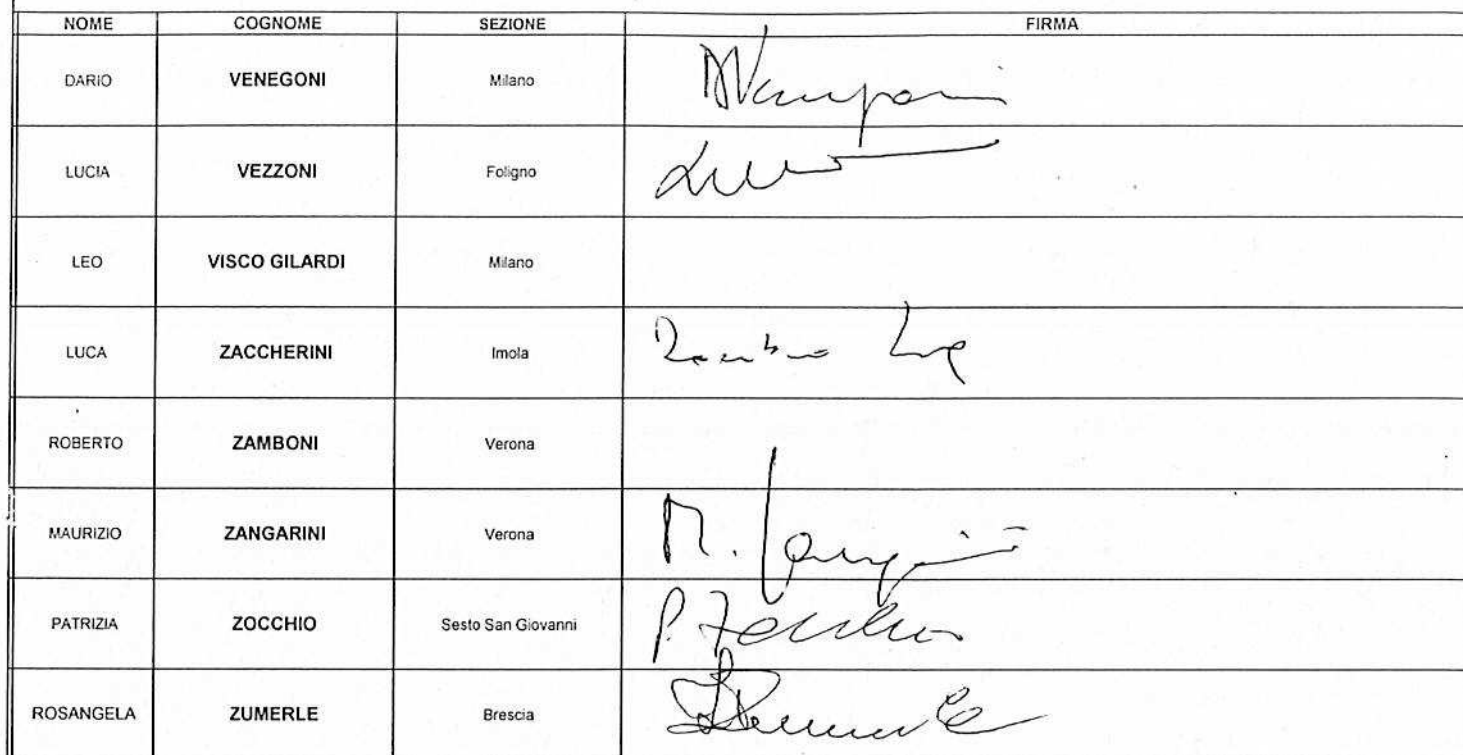 NOME COGNOME SEZIONE FIRMA
DARIO VENEGONI Milano
LUCIA VEZZONI Foligno
LEO VISCO GILARDI Milano
LUCA ZACCHERINI Imola
ROBERTO ZAMBONI Verona
MAURIZIO ZANGARINI Verona M.
PATRIZIA ZOCCHIO Sesto San Giovanni P. Zocchio
ROSANGELA ZUMERLE Brescia